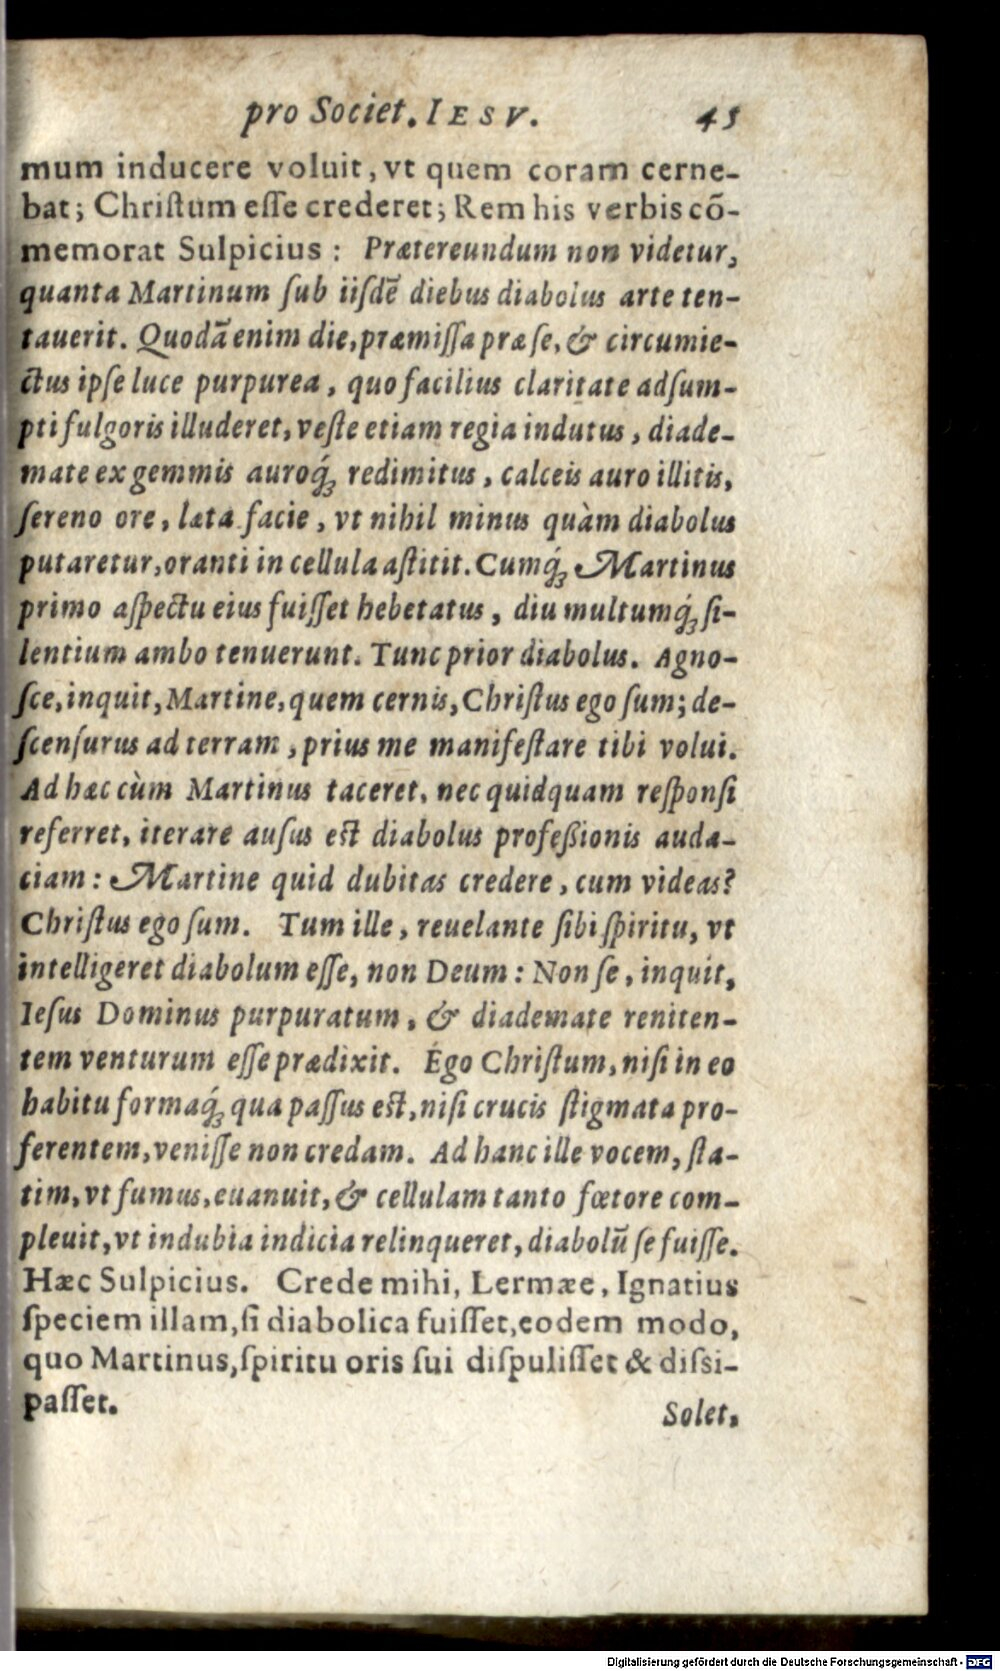 pro Societ. IESV. 45
mum inducere voluit, vt quem coram cerne-
bat; Chriſtum eſſe crederet; Rem his verbis cō-
memorat Sulpicius: Prætereundum non videtur,
quanta Martinum ſub iiſdē diebus diabolus arte ten-
tauerit. Quodā enim die, præmiſſa præ ſe, & circumie-
ctus ipſe luce purpurea, quo facilius claritate adſum-
pti fulgoris illuderet, veſte etiam regia indutus, diade-
mate ex gemmis auroq́; redimitus, calceis auro illitis,
ſereno ore, læta facie, vt nihil minus quàm diabolus
putaretur, oranti in cellula aſtitit. Cumq́; Martinus
primo aſpectu eius fuiſſet hebetatus, diu multumq́; ſi-
lentium ambo tenuerunt. Tunc prior diabolus. Agno-
ſce, inquit, Martine, quem cernis, Chriſtus ego ſum; de-
ſcenſurus ad terram, prius me manifeſtare tibi volui.
Ad hæc cùm Martinus taceret, nec quidquam reſponſi
referret, iterare auſus eſt diabolus profeßionis auda-
ciam: Martine quid dubitas credere, cum videas?
Chriſtus ego ſum. Tum ille, reuelante ſibi ſpiritu, vt
intelligeret diabolum eſſe, non Deum: Non ſe, inquit,
Ieſus Dominus purpuratum, & diademate reniten-
tem venturum eſſe prædixit. Ego Chriſtum, niſi in eo
habitu formaq́; qua paſſus eſt, niſi crucis ſtigmata pro-
ferentem, veniſſe non credam. Ad hanc ille vocem, ſta-
tim, vt fumus, euanuit, & cellulam tanto fœtore com-
pleuit, vt indubia indicia relinqueret, diabolū ſe fuiſſe.
Hæc Sulpicius. Crede mihi, Lermæe, Ignatius
ſpeciem illam, ſi diabolica fuiſſet, eodem modo,
quo Martinus, ſpiritu oris ſui diſpuliſſet & diſſi-
paſſet.
Solet,
Digitalisierung gefördert durch die Deutsche Forschungsgemeinschaft - DFG